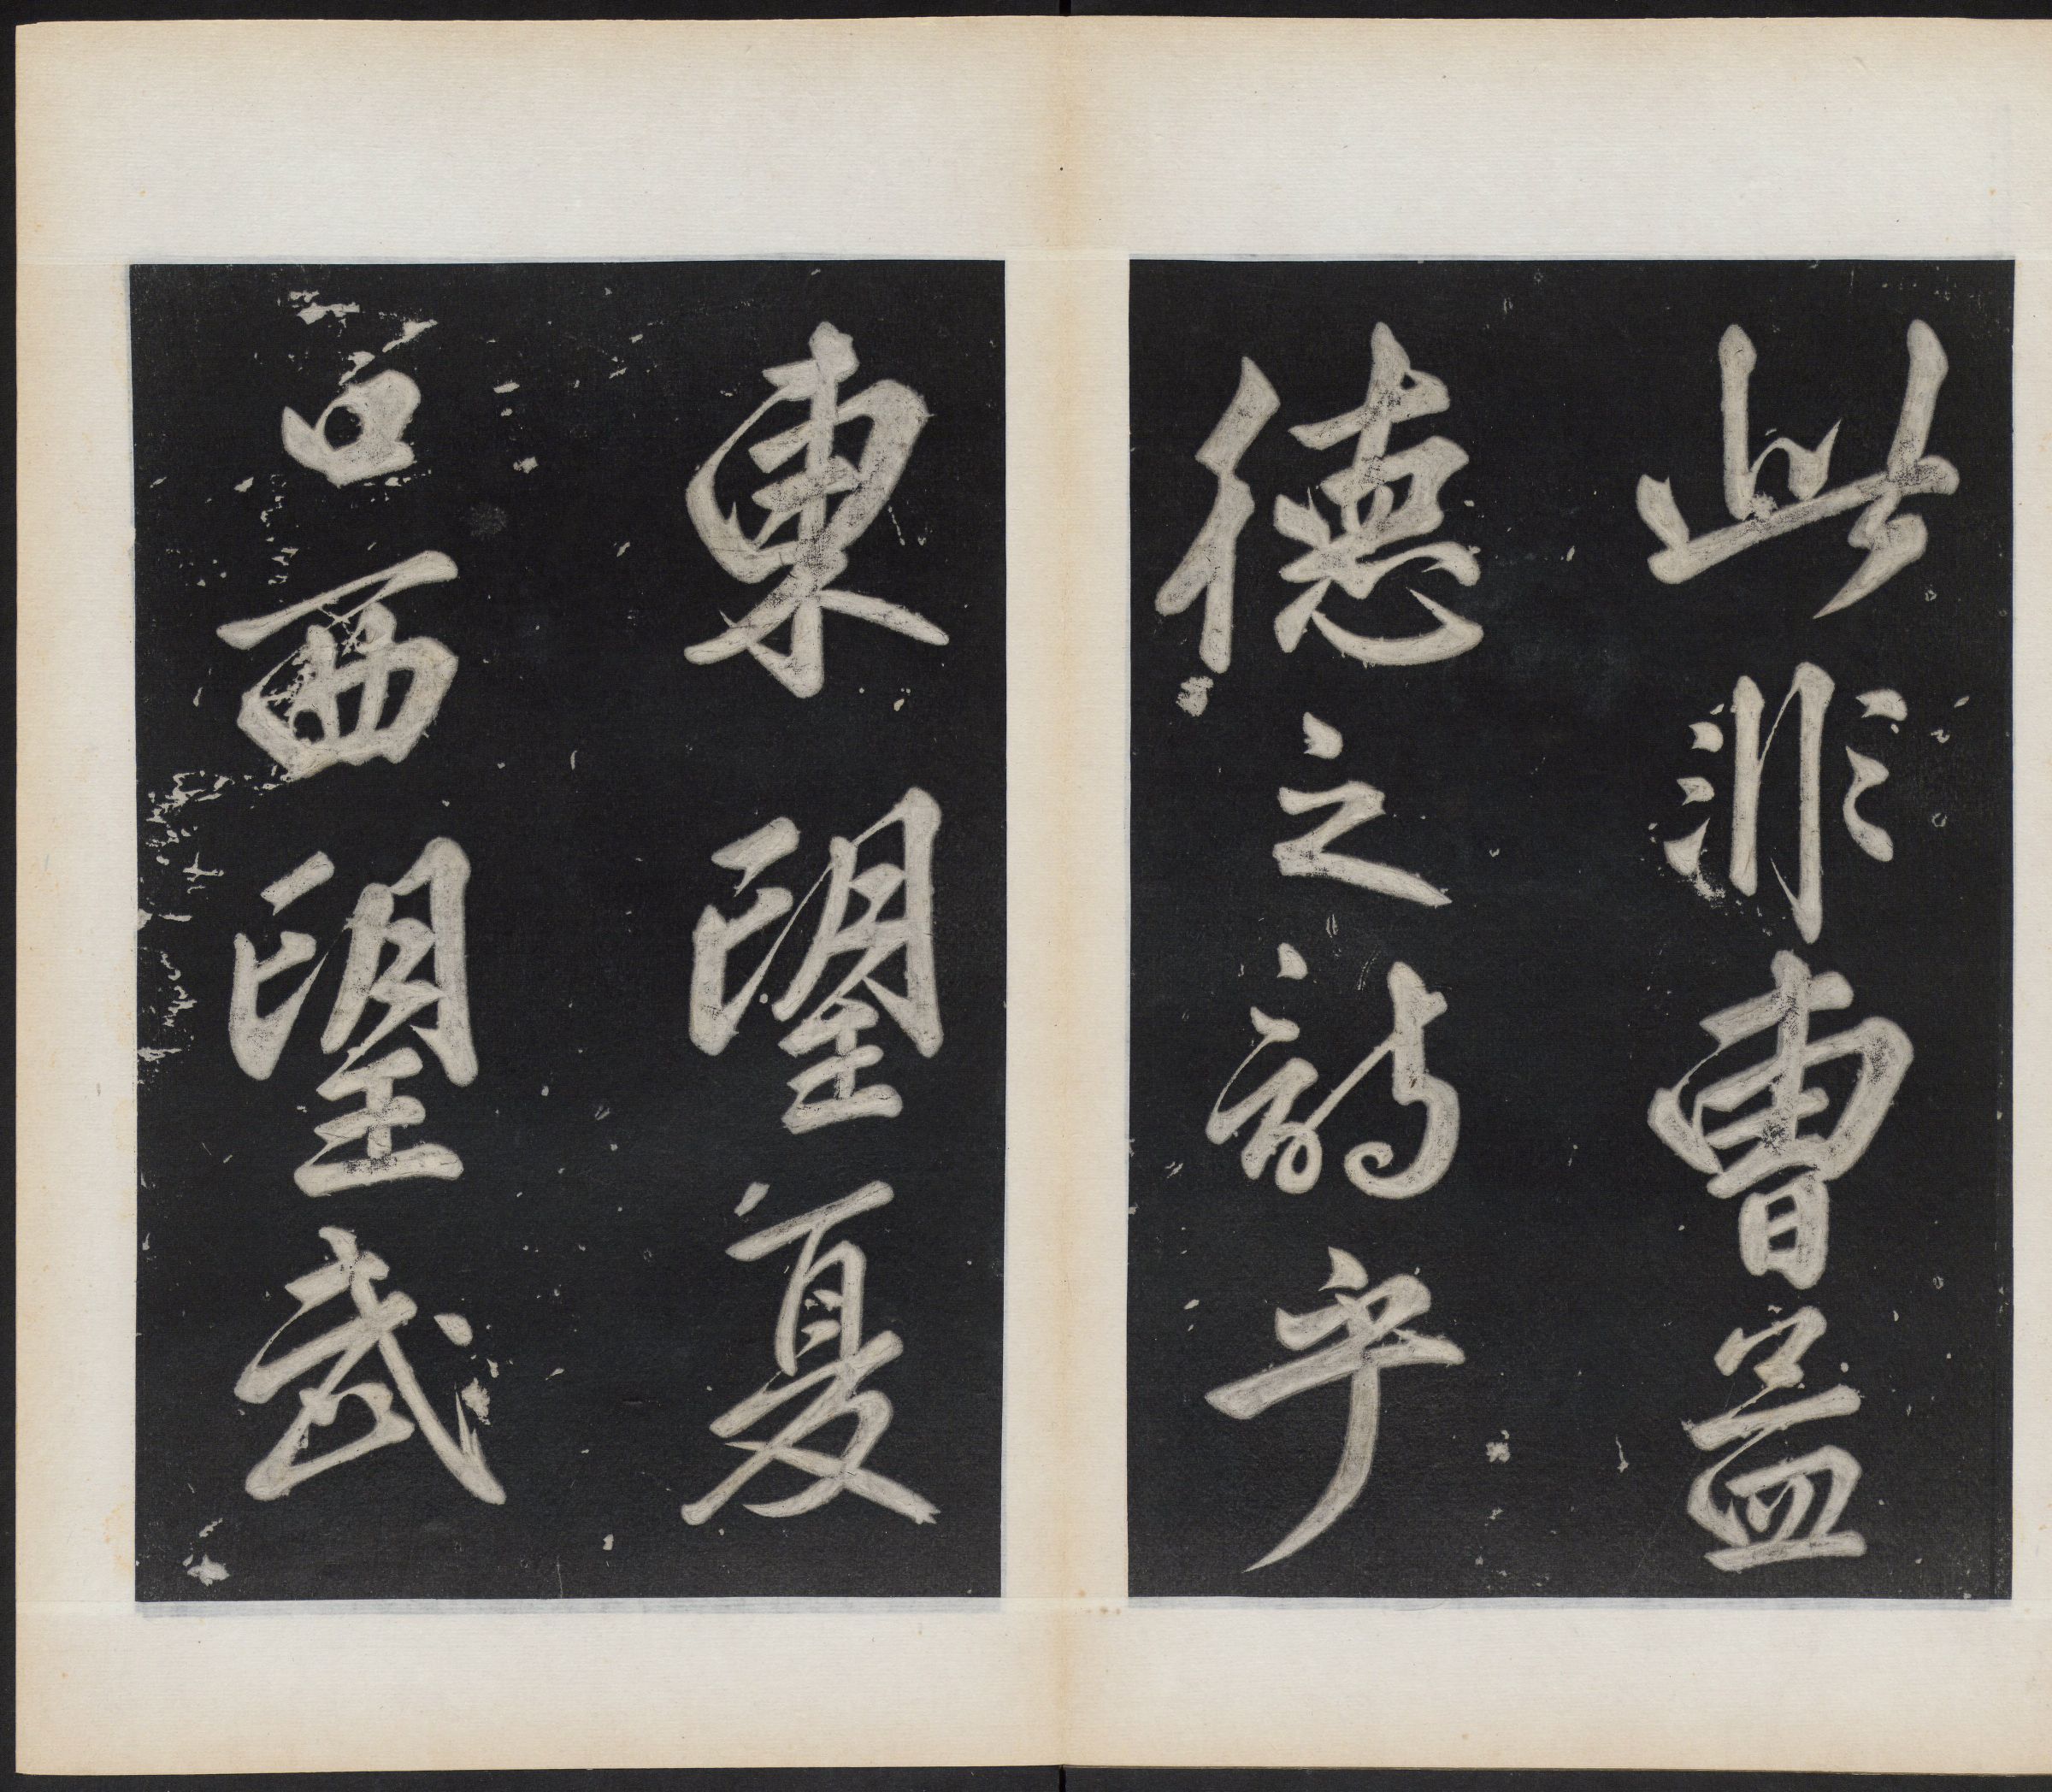 此非曹孟
德之詩乎
東望夏
口西望武